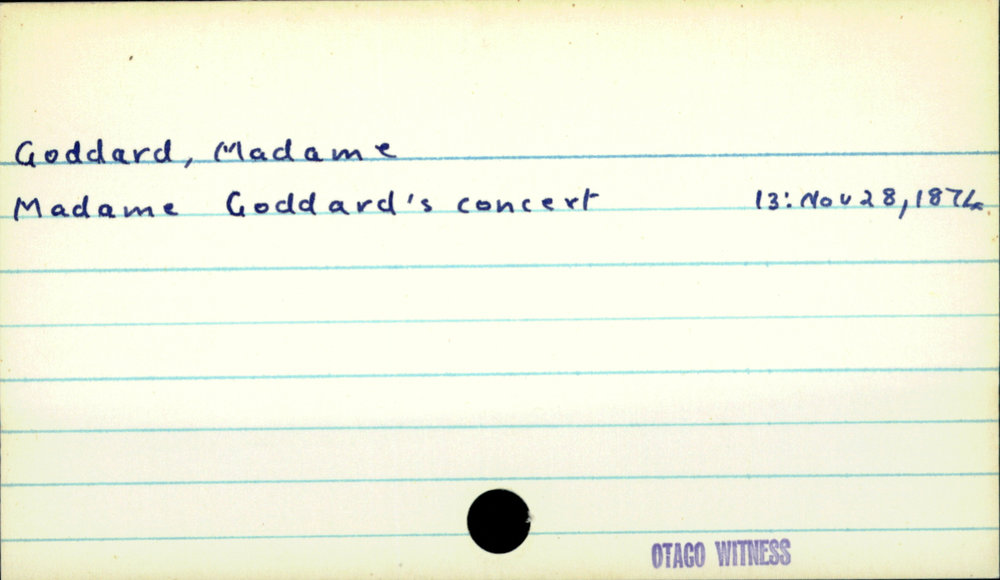 Goddard, Madame
Madame Goddard's concert 13: Nov 28, 1874
OTAGO WITNESS